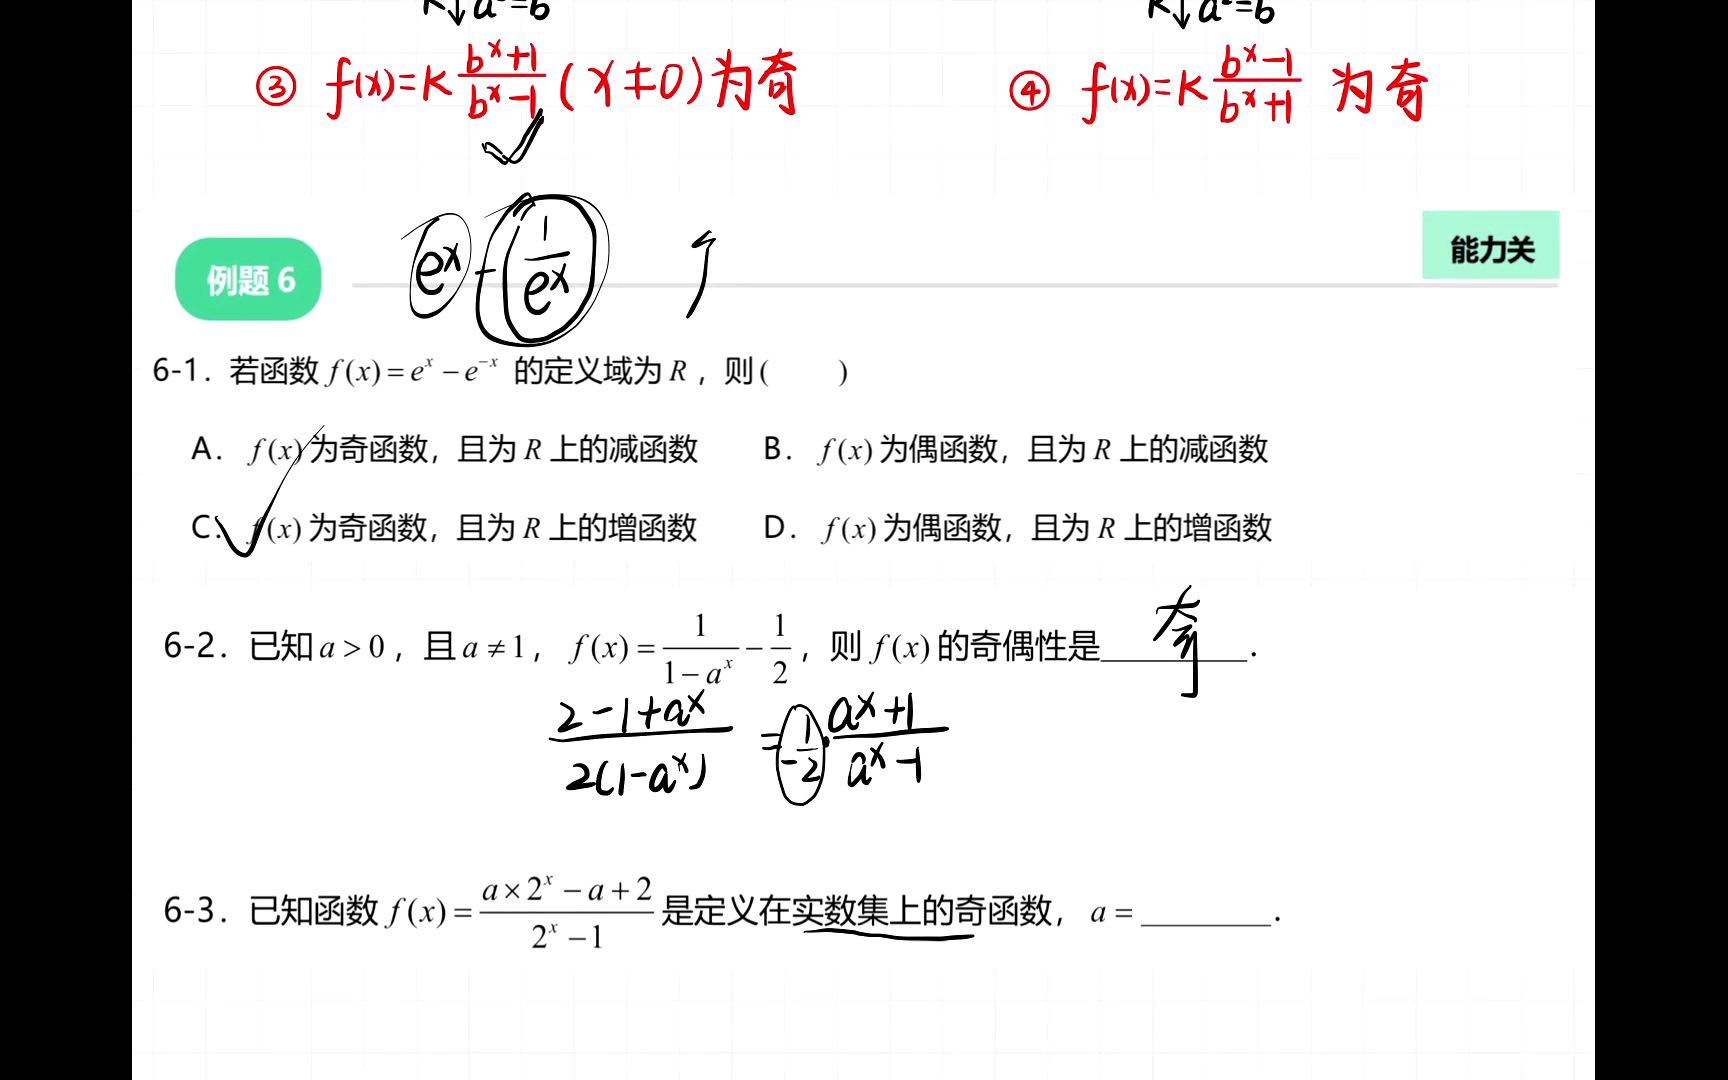 K↓a²=b K↓a²=b
③ f(x)=K (bˣ+1)/(bˣ-1) (x≠0)为奇 ④ f(x)=K (bˣ-1)/(bˣ+1) 为奇
eˣ - 1/eˣ
例题 6 能力关
6-1. 若函数 f(x)=eˣ-e⁻ˣ 的定义域为 R，则( )
A. f(x)为奇函数，且为 R 上的减函数 B. f(x)为偶函数，且为 R 上的减函数
C. f(x)为奇函数，且为 R 上的增函数 D. f(x)为偶函数，且为 R 上的增函数
6-2. 已知 a>0，且 a≠1，f(x)=1/(1-aˣ)-1/2，则 f(x)的奇偶性是奇.
(2-1+aˣ)/(2(1-aˣ)) = -1/2·(aˣ+1)/(aˣ-1)
6-3. 已知函数 f(x)=(a×2ˣ-a+2)/(2ˣ-1) 是定义在实数集上的奇函数，a=________.